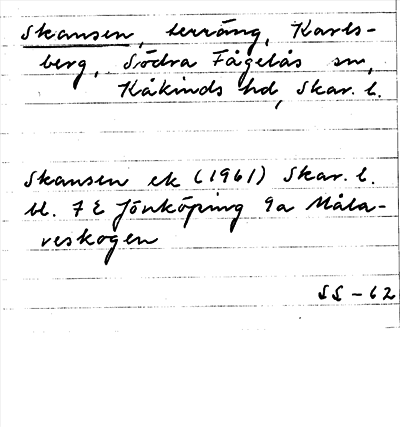 Skansen, terräng, Karls-
berg, Södra Fågelås sn,
Kåkinds hd, Skar. l.
Skansen ek (1961) Skar. l.
bl. 7 E Jönköping 9a Måla-
veskogen
SS-62